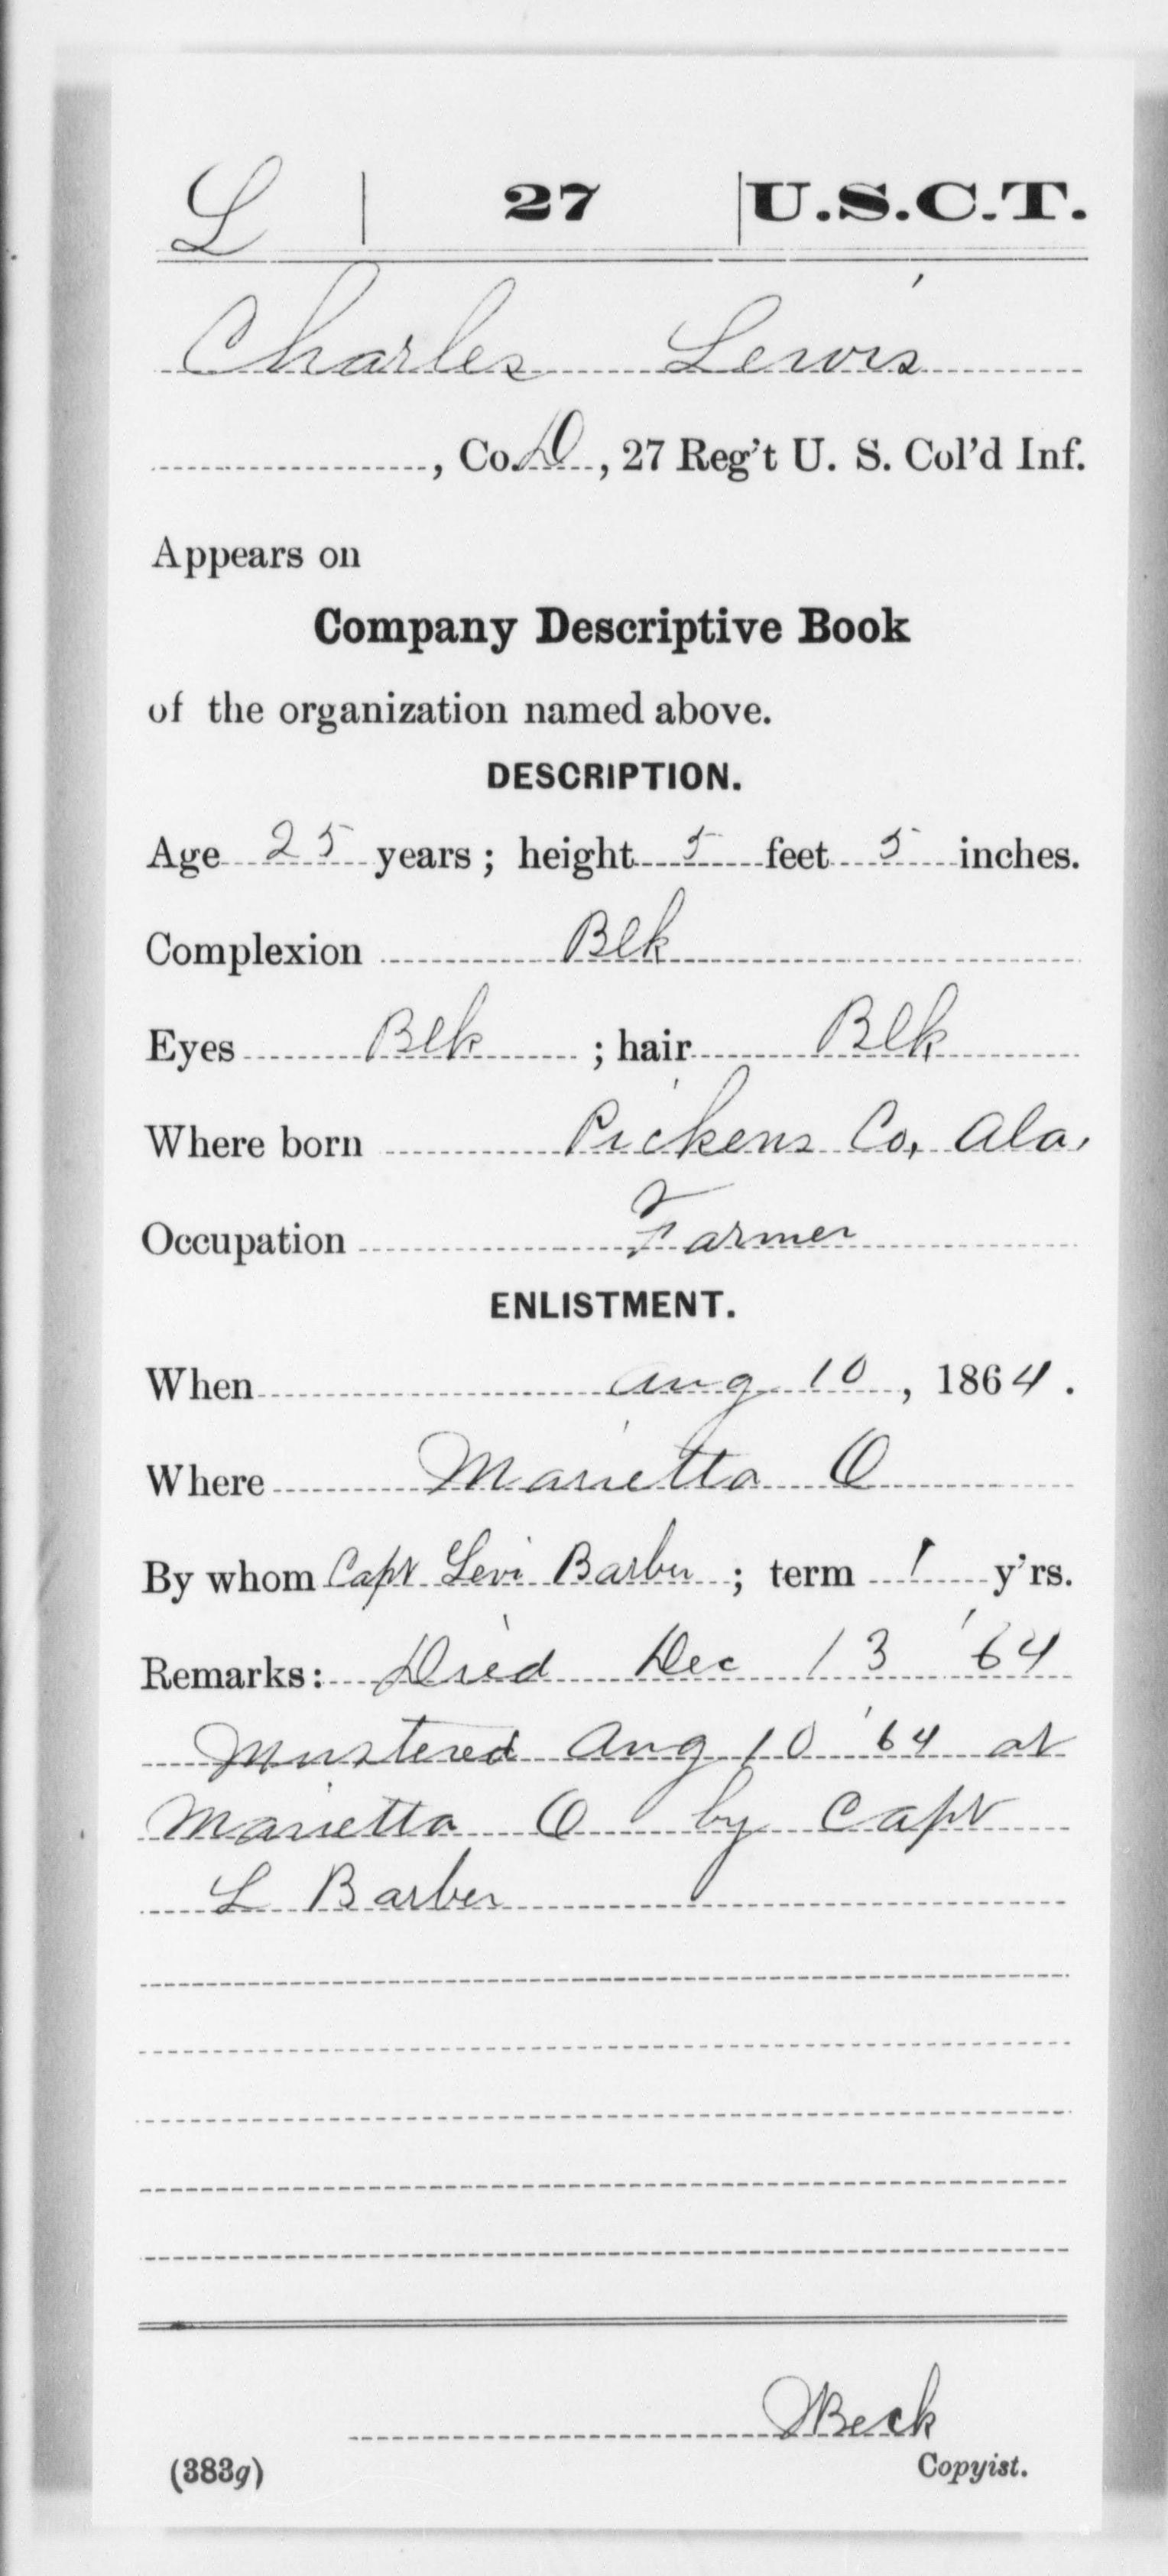 L | 27 | U.S.C.T.
Charles Lewis
, Co. D, 27 Reg't U. S. Col'd Inf.
Appears on
Company Descriptive Book
of the organization named above.
DESCRIPTION.
Age 25 years; height 5 feet 5 inches.
Complexion Blk
Eyes Blk ; hair Blk
Where born Pickens Co, Ala,
Occupation Farmer
ENLISTMENT.
When Aug 10, 1864.
Where Marietta O
By whom Capt Levi Barber ; term 1 y'rs.
Remarks: Died Dec 13 '64
Mustered Aug 10 '64 at
Marietta O by Capt
L Barber
JBeck
(383g) Copyist.